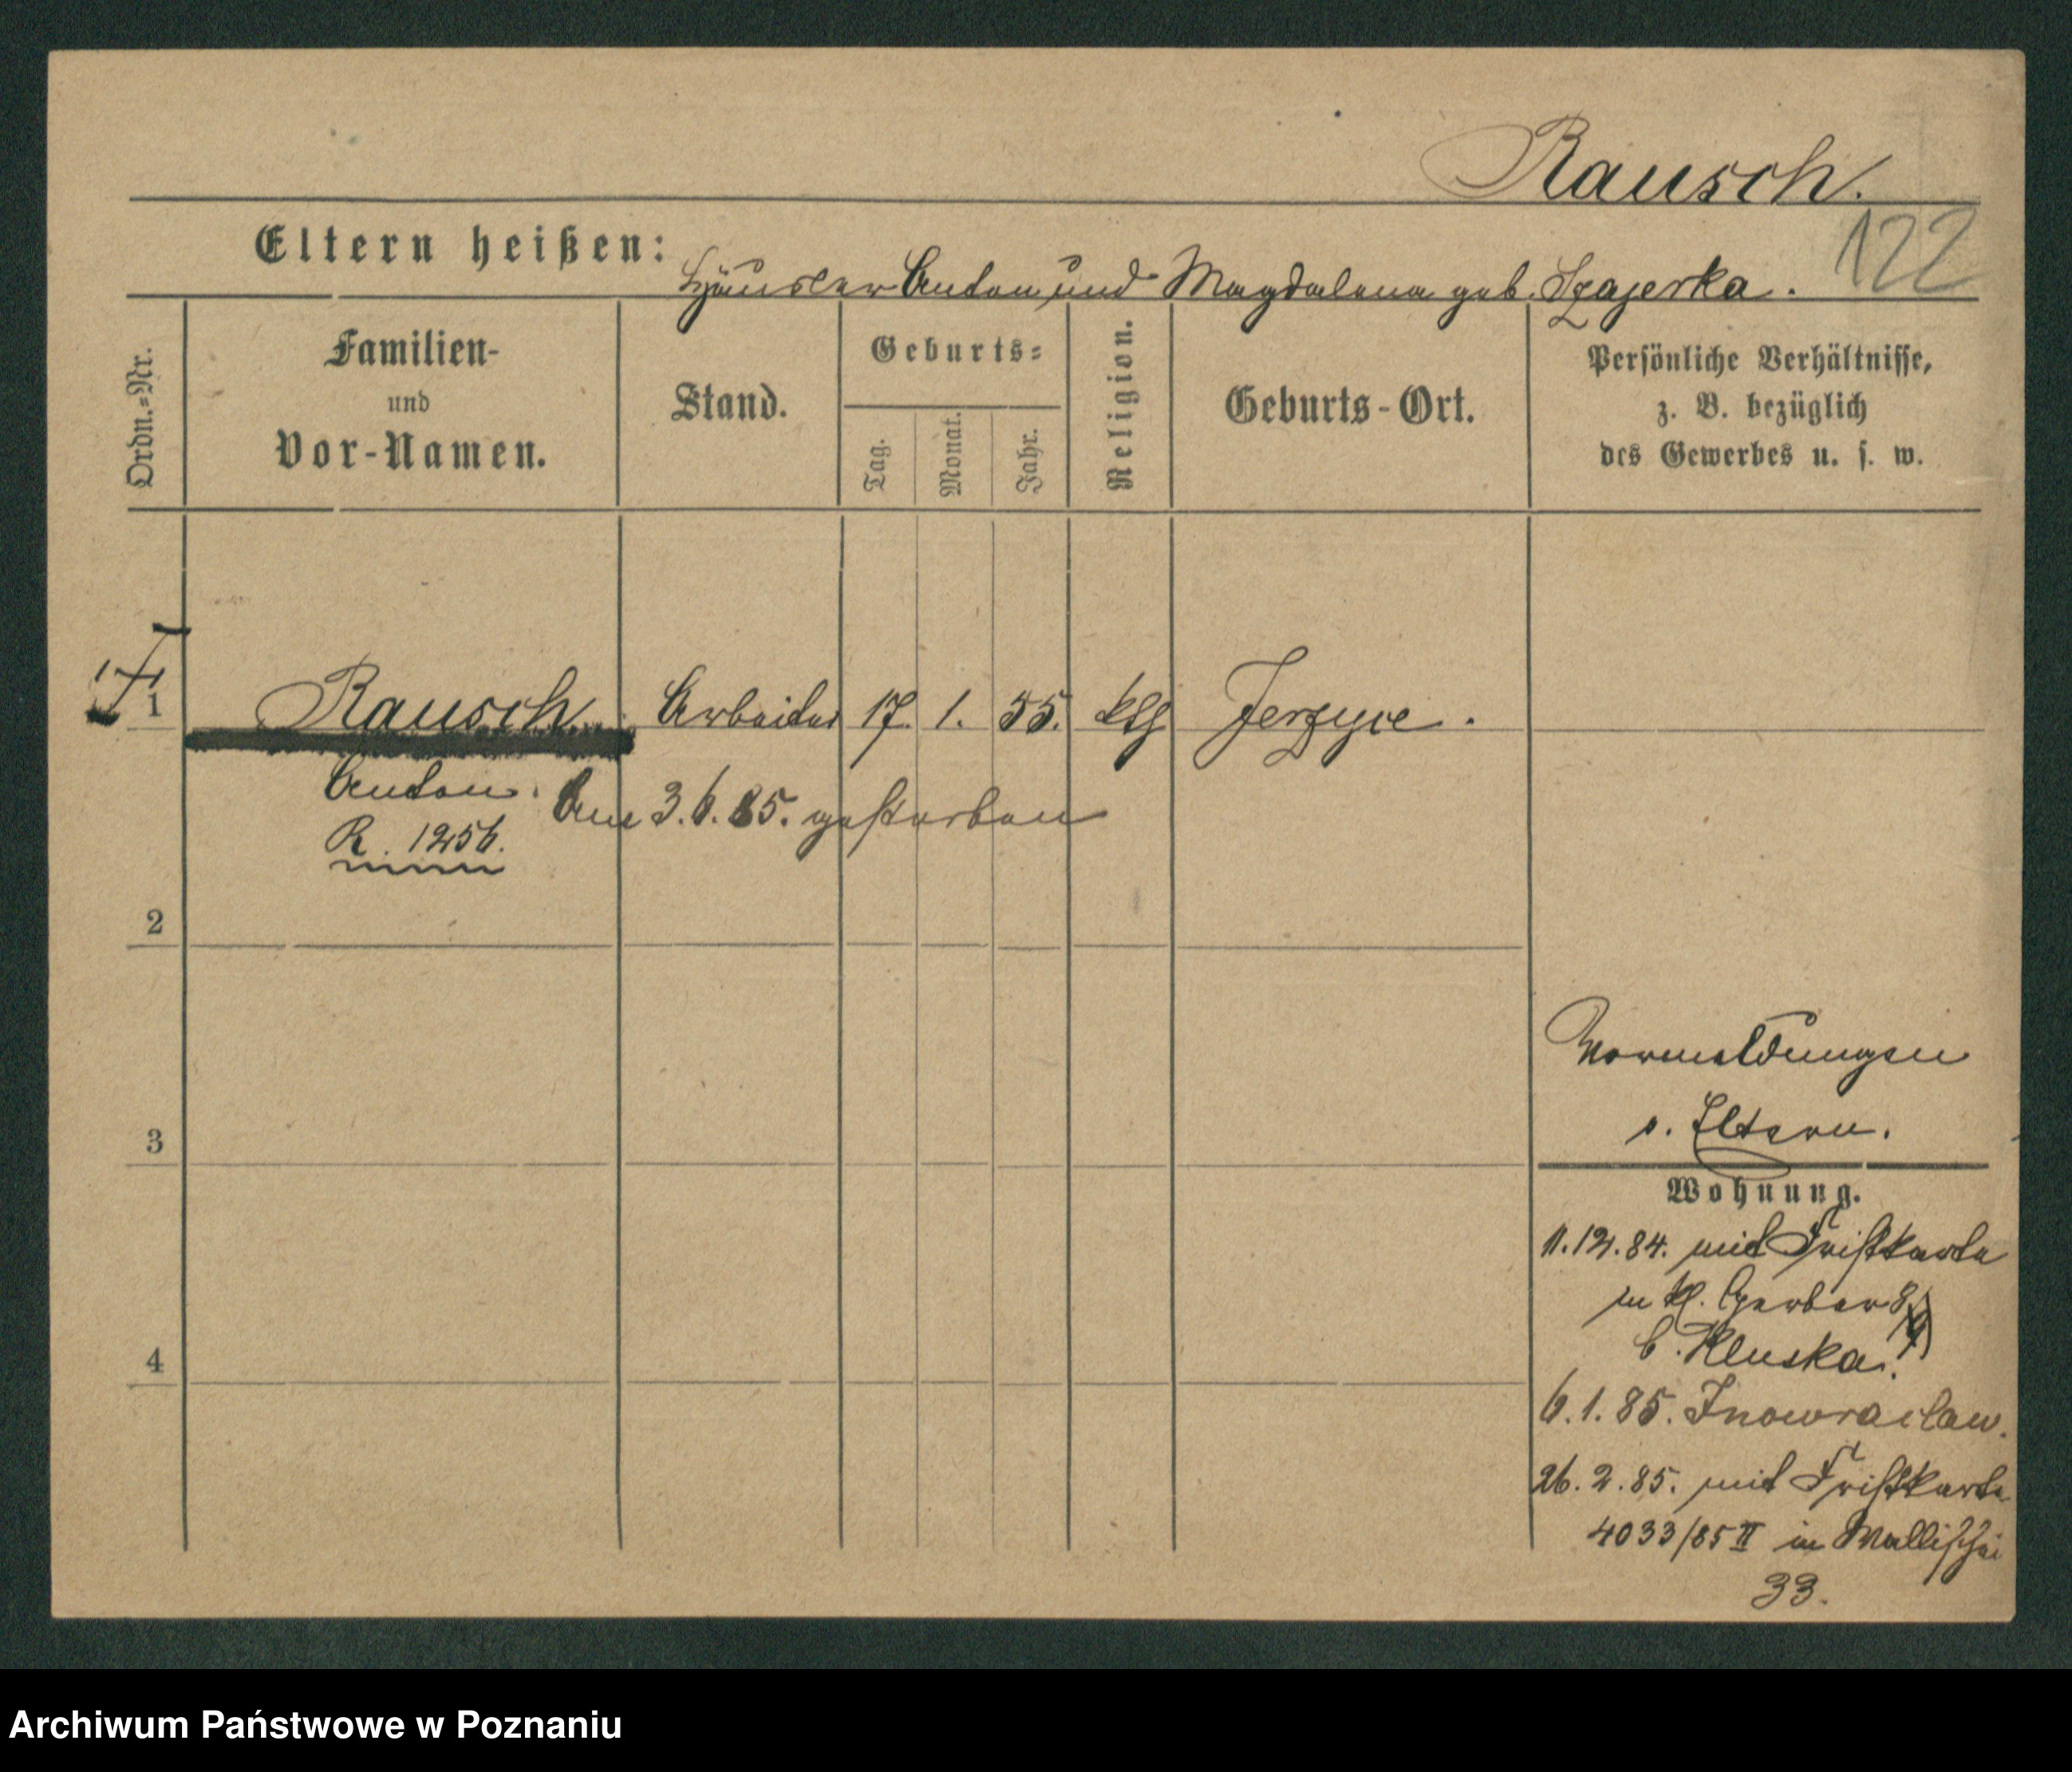 Rausch.
122
Eltern heißen: Häusler Anton und Magdalena geb. Szajerka.
Ordn.=Nr.
Familien-
und
Vor-Namen.
Stand.
Geburts=
Tag.
Monat.
Jahr.
Religion.
Geburts-Ort.
Persönliche Verhältnisse,
z. B. bezüglich
des Gewerbes u. s. w.
1 Rausch Arbeiter 17. 1. 55. ktl Jerzyce.
Anton. Am 3.6.85. gestorben
R. 1256.
2
Vormeldungen
s. Eltern.
3
Wohnung.
11.12.84. mit Fristkarte
in kl. Gerber 8/9
b. Kluska.
4
6.1.85. Inowraclaw.
26.2.85. mit Fristkarte
4033/85 II in Wallischei
33.
Archiwum Państwowe w Poznaniu